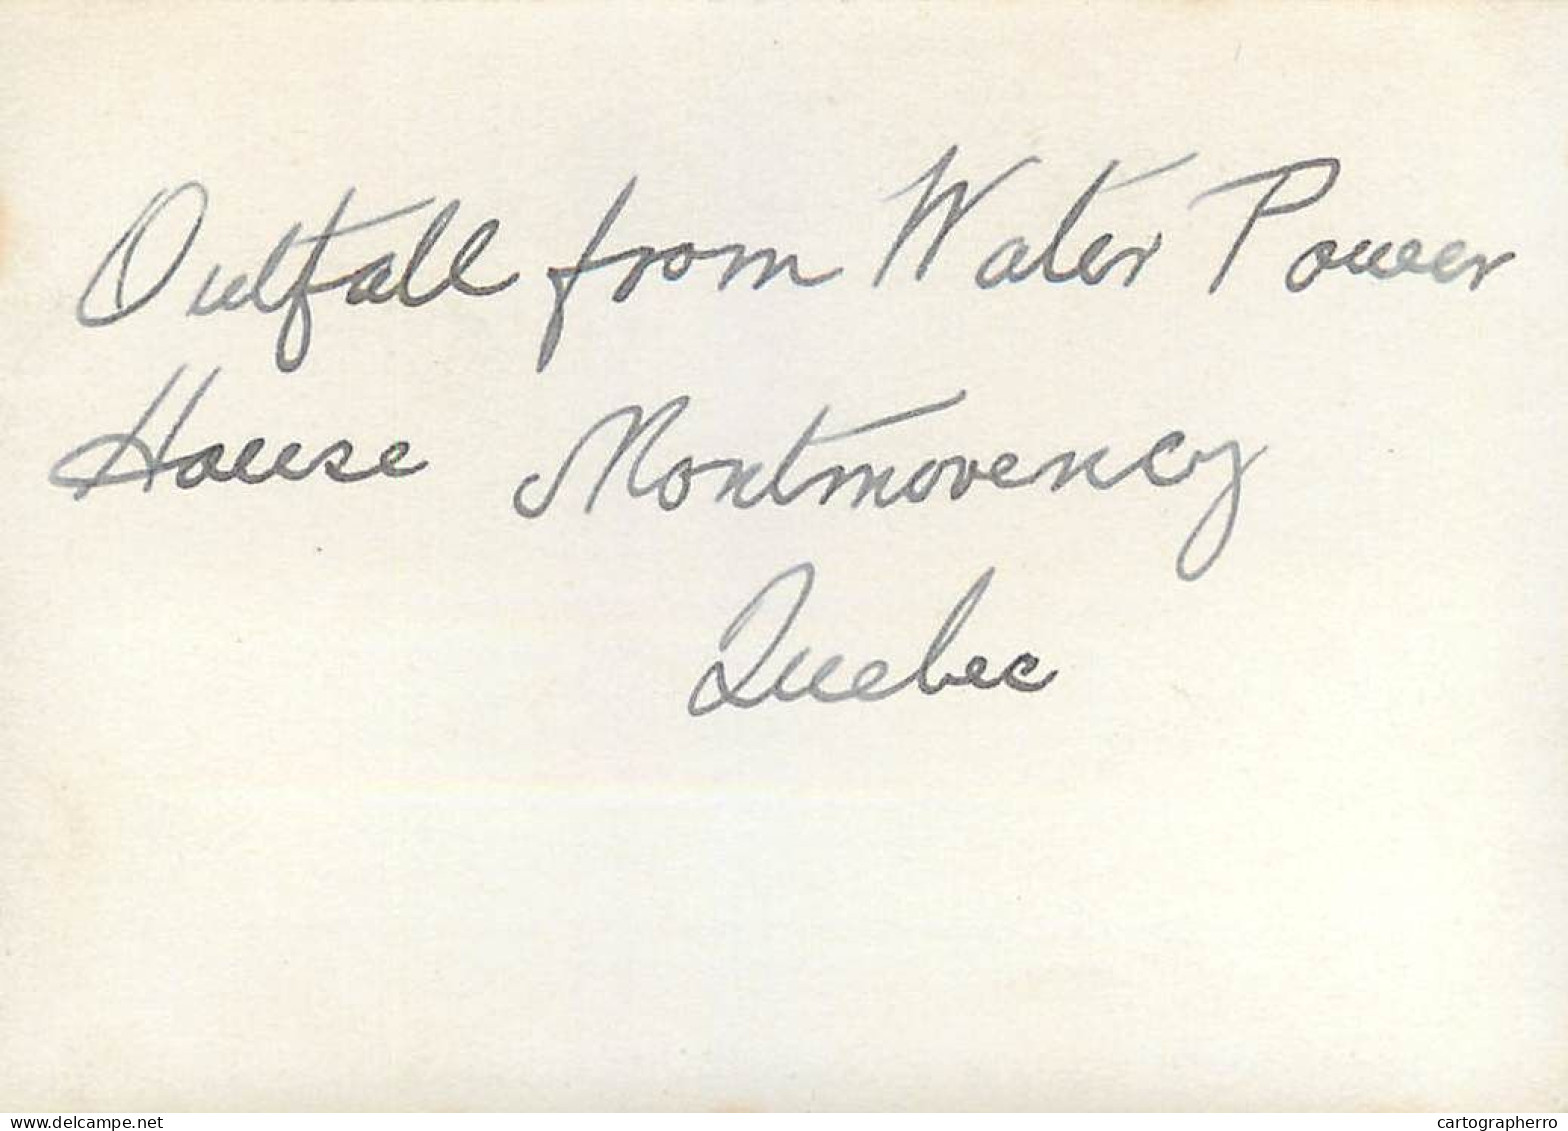 Outfall from Water Power
House Montmovency
Quebec
delcampe.net
cartographerro